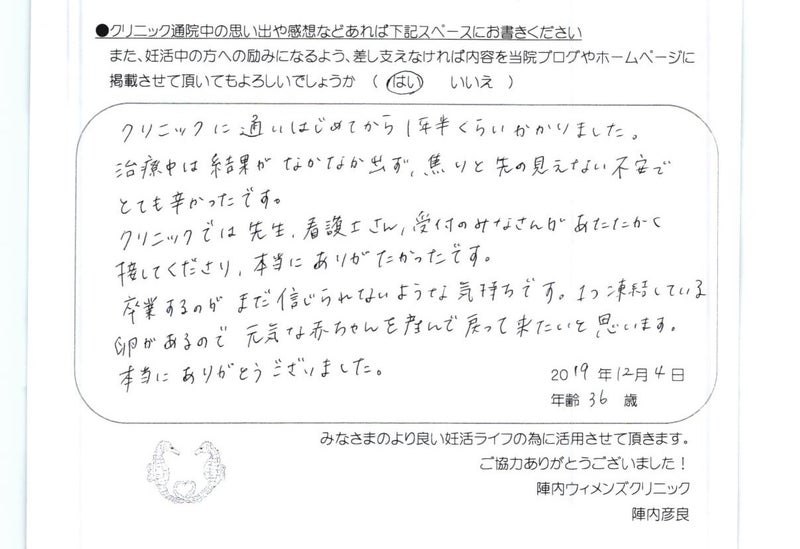 ●クリニック通院中の思い出や感想などあれば下記スペースにお書きください
また、妊活中の方への励みになるよう、差し支えなければ内容を当院ブログやホームページに
掲載させて頂いてもよろしいでしょうか （ はい いいえ ）
クリニックに通いはじめてから1年半くらいかかりました。
治療中は結果がなかなか出ず、焦りと先の見えない不安で
とても辛かったです。
クリニックでは先生、看護士さん、受付のみなさんがあたたかく
接してくださり、本当にありがたかったです。
卒業するのがまだ信じられないような気持ちです。1つ凍結している
卵があるので元気な赤ちゃんを産んで戻って来たいと思います。
本当にありがとうございました。
2019年12月4日
年齢 36 歳
みなさまのより良い妊活ライフの為に活用させて頂きます。
ご協力ありがとうございました！
陣内ウィメンズクリニック
陣内彦良